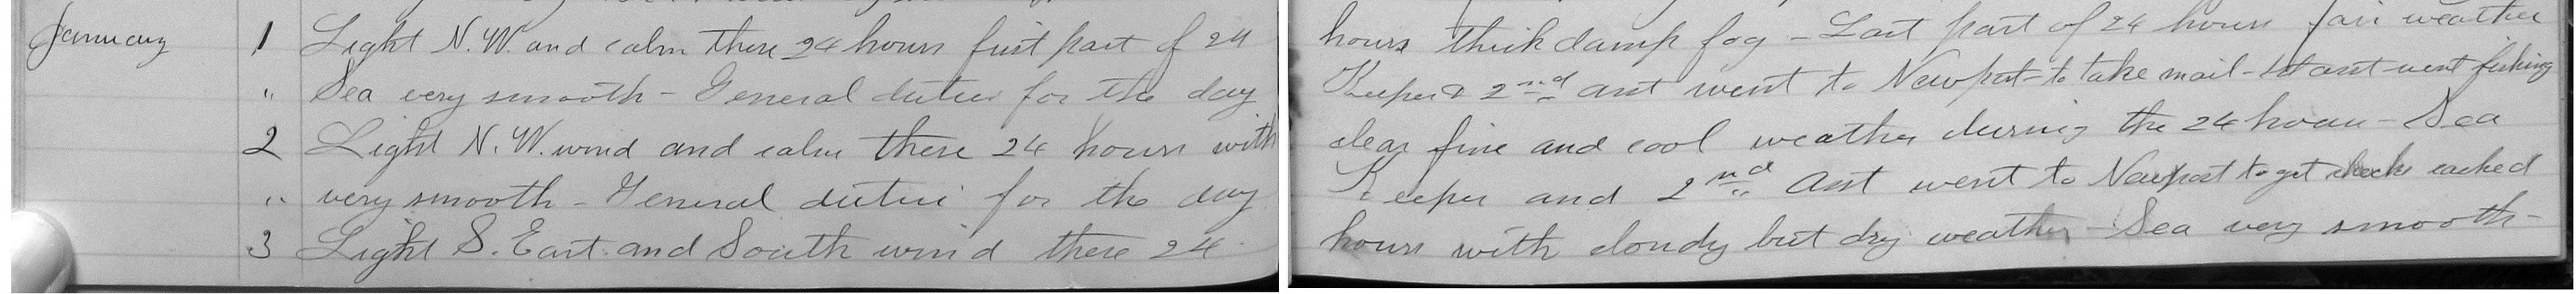 January 1 Light N.W. and calm these 24 hours first part of 24
hours thick damp fog - Last part of 24 hours fair weather
" Sea very smooth - General duties for the day
Keeper & 2nd asst went to Newport to take mail - 1st asst went fishing
2 Light N.W. wind and calm these 24 hours with
clear fine and cool weather during the 24 hours - Sea
" very smooth - General duties for the day
Keeper and 2nd Asst went to Newport to get checks cashed
3 Light S. East and South wind these 24
hours with cloudy but dry weather - Sea very smooth -